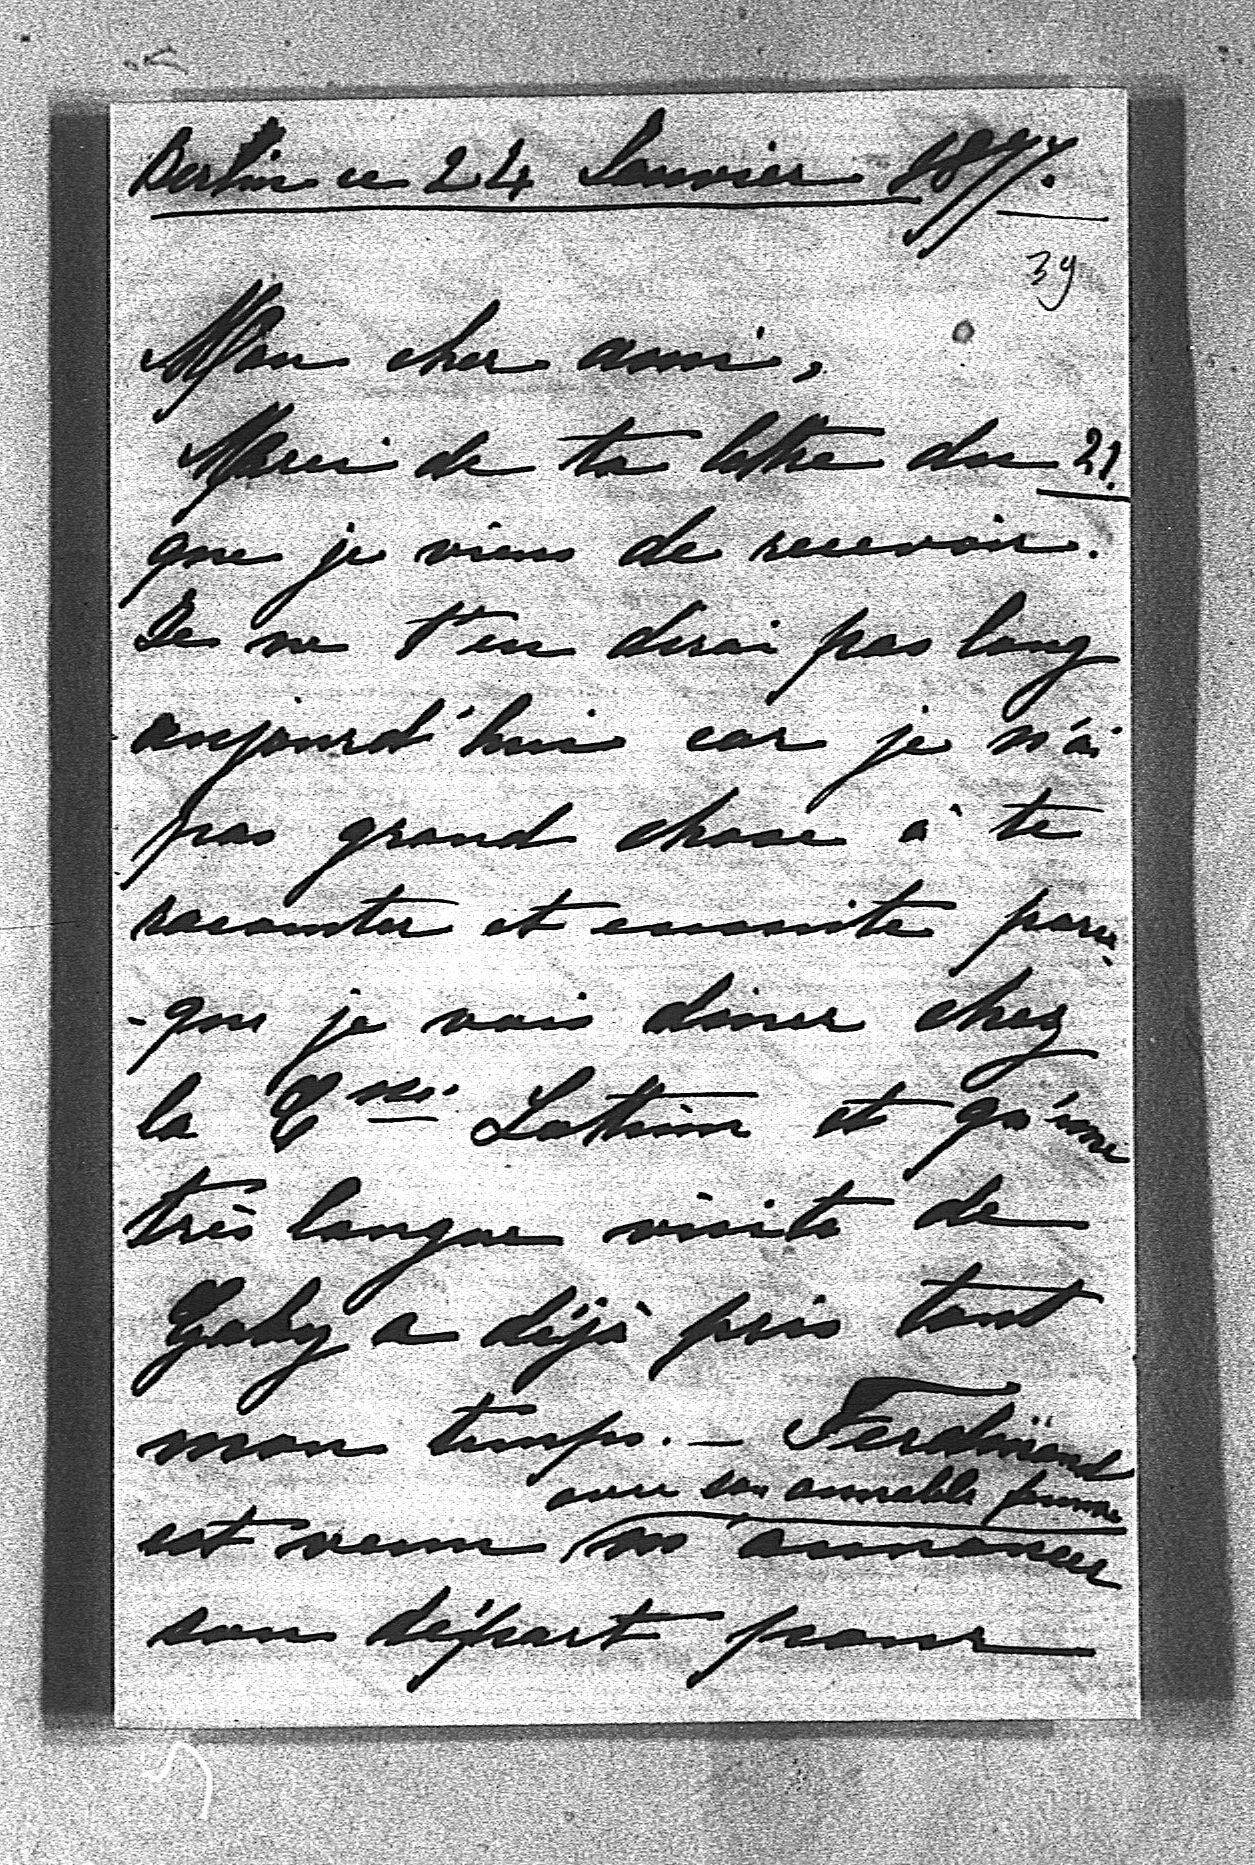 Berlin ce 24 Janvier 1877.
39
Mon cher ami,
Merci de ta lettre du 21.
que je viens de recevoir.
Je ne t'en dirai pas long
aujourd'hui car je n'ai
pas grand chose à te
raconter et ensuite parce
-que je vais diner chez
la et qu'une
très longue visite de
Gaby a déjà pris tout
mon temps. — Ferdinand
avec son aimable femme
est venu m'annoncer
son départ pour